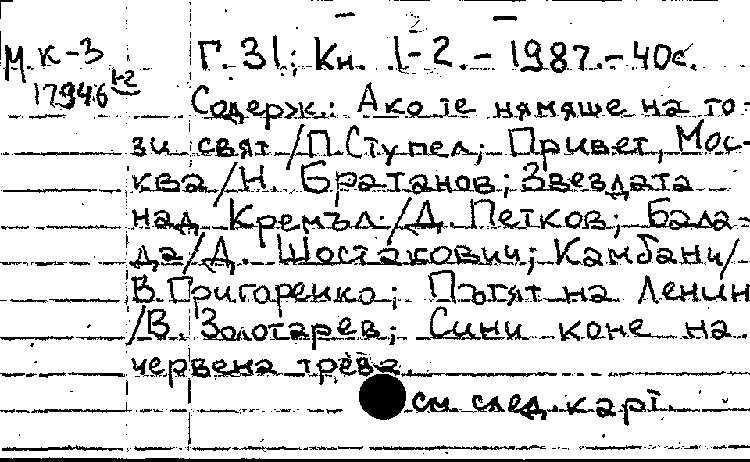 М к-3 Г. 31; Кн. 1-2. - 1987. - 40с.
17946 1-2
Содерж.: Ако те нямяше на то-
зи свят /П.Ступел; Привет, Мос-
ква /Н. Братанов; Звездата
над Кремъл /Д. Петков; Бала-
да /Д. Шостакович; Камбани/
В.Григоренко; Пътят на Ленин
/В. Золотарев; Сини коне на
червена трева.
см. след. карт.